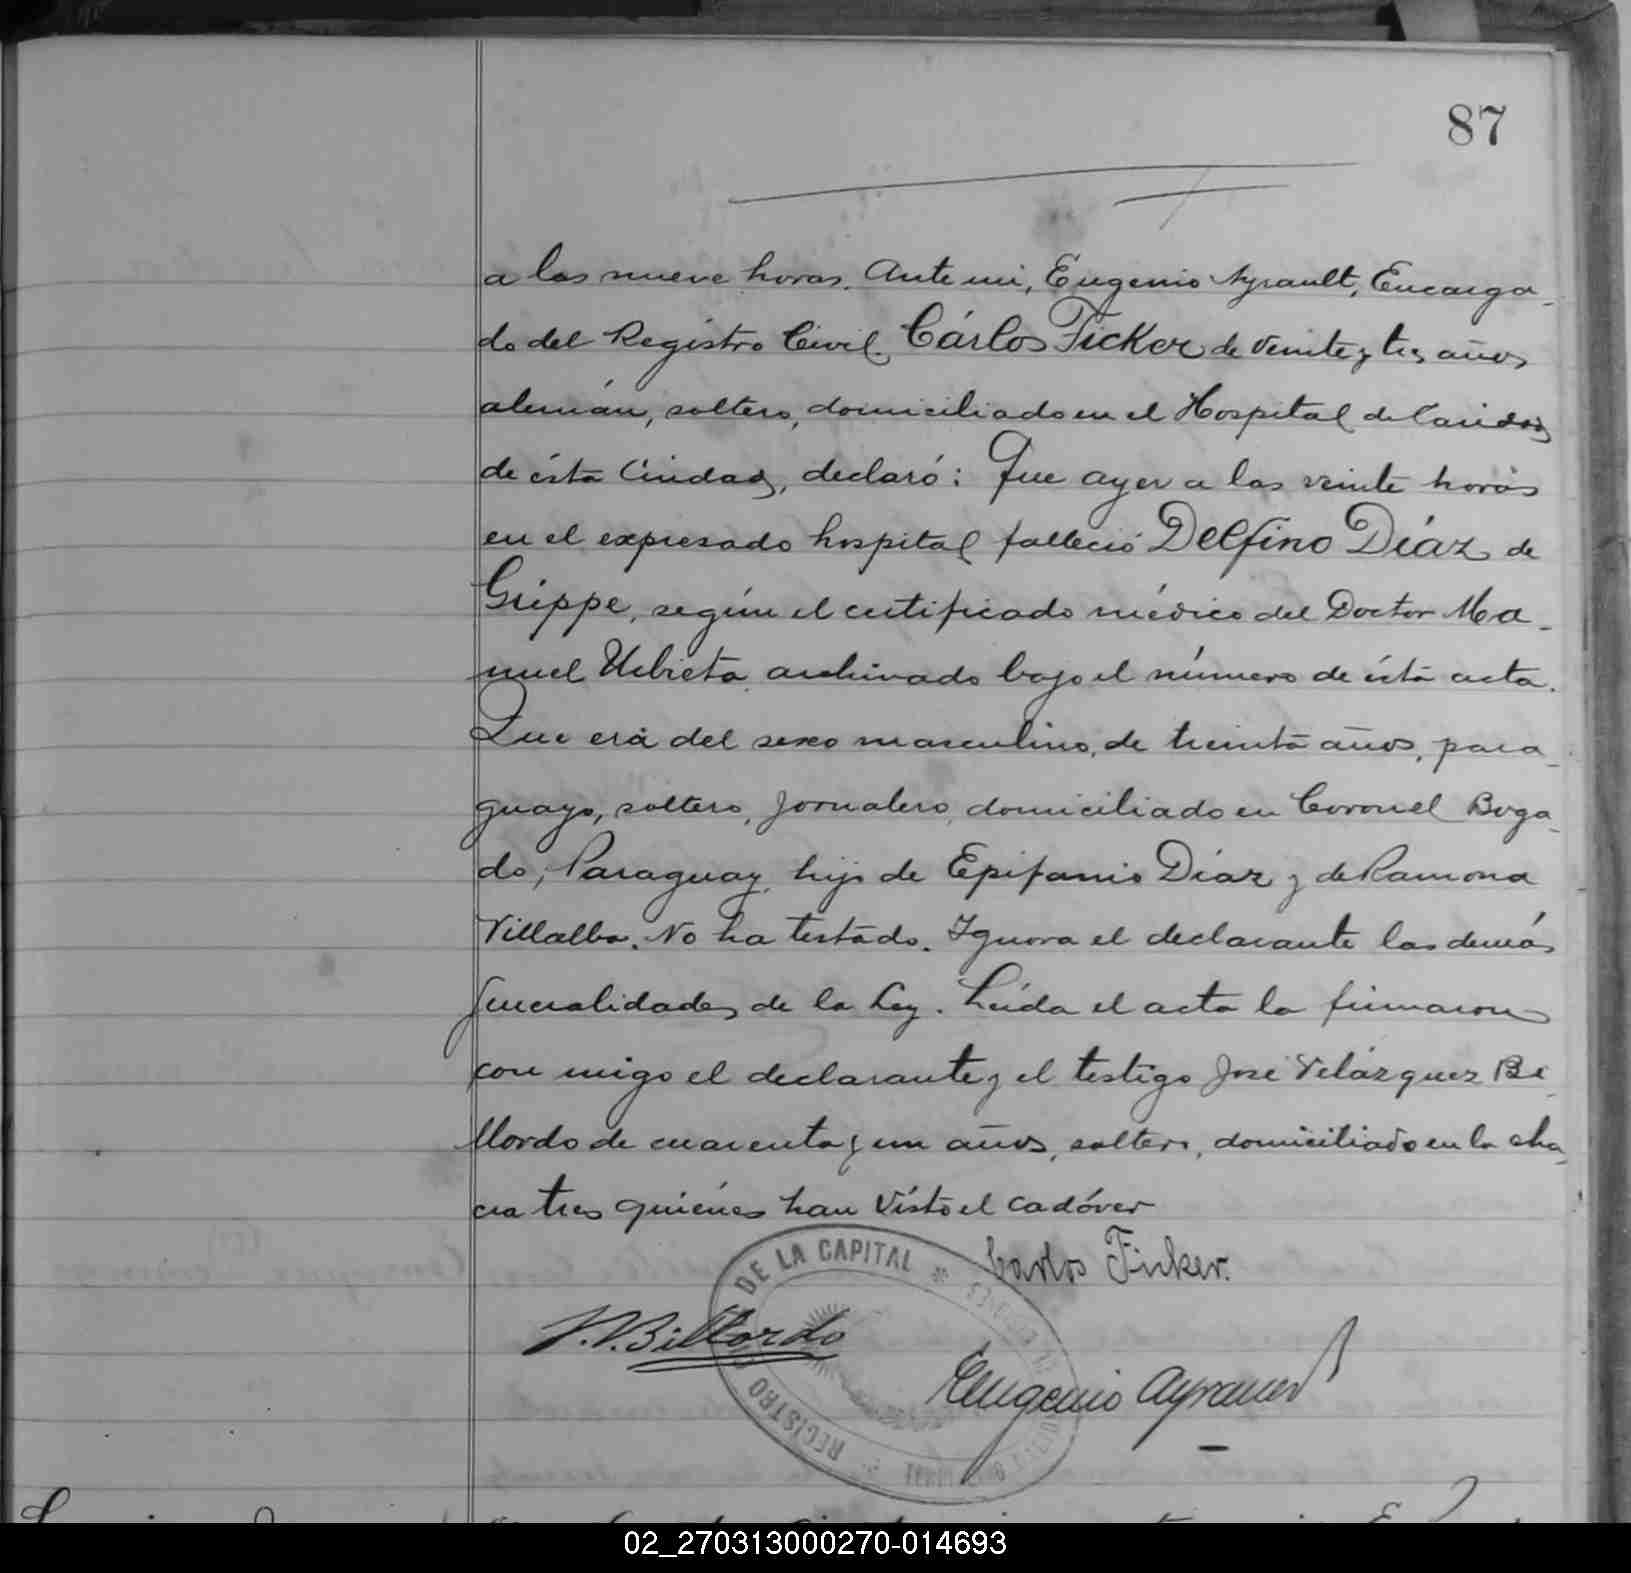 87
a las nueve horas. Ante mi, Eugenio Ayrault, Encarga-
do del Registro Civil. Cárlos Ficker de veinte y tres años
alemán, soltero, domiciliado en el Hospital de Caridad
de ésta Ciudad, declaró: Que ayer a las veinte horas
en el expresado hospital falleció Delfino Díaz de
Grippe, según el certificado médico del Doctor Ma-
nuel Urbieta archivado bajo el número de ésta acta.
Que era del sexo masculino, de treinta años, para-
guayo, soltero, jornalero, domiciliado en Coronel Boga-
do, Paraguay, hijo de Epifanio Díaz y de Ramona
Villalba. No ha testado. Ignora el declarante las demás
generalidades de la Ley. Leída el acta la firmaron
con migo el declarante y el testigo José Velázquez Bi-
llordo de cuarenta y un años, soltero, domiciliado en la cha-
cra tres quiénes han visto el cadáver
Carlos Ficker.
DE LA CAPITAL
REGISTRO
V. Billordo
Eugenio Ayrault
02_270313000270-014693